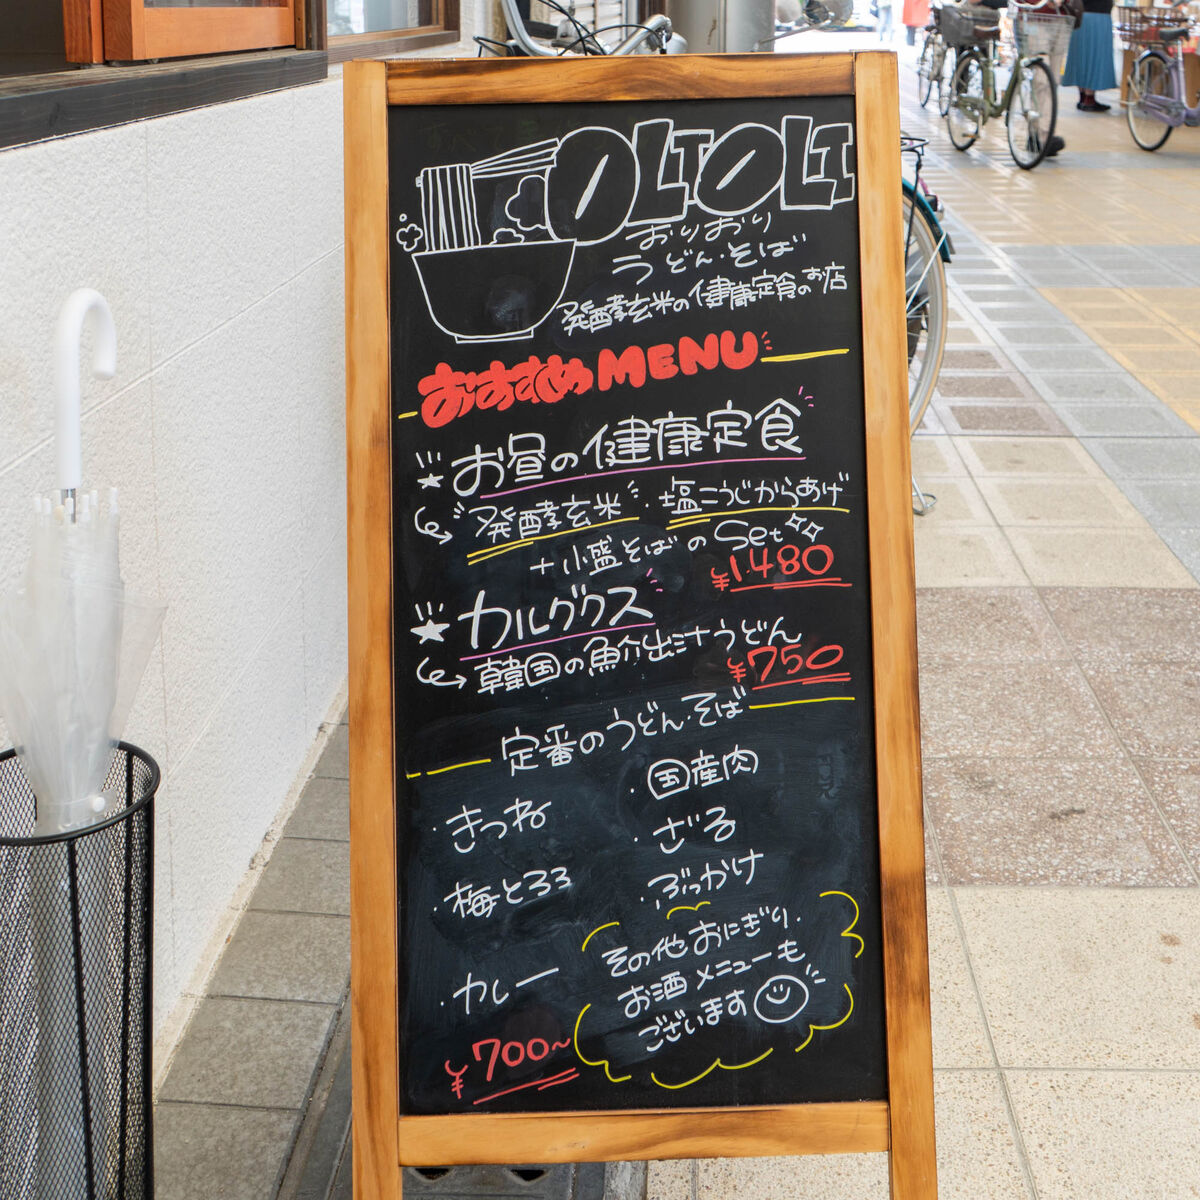 OLIOLI
おりおり
うどん・そば
発酵玄米の健康定食のお店
おすすめMENU
お昼の健康定食
発酵玄米・塩こうじからあげ
+小盛そばのSet
¥1.480
カルグクス
韓国の魚介出汁うどん
¥750
定番のうどん・そば
・きつね
・梅とろろ
・カレー
¥700~
・国産肉
・ざる
・ぶっかけ
その他おにぎり・
お酒メニューも
ございます